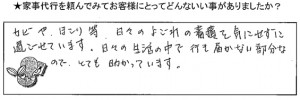 ★家事代行を頼んでみてお客様にとってどんないい事がありましたか？
カビや、ほこり等、日々のよごれの蓄積を気にせずに
過ごせています。日々の生活の中で行き届かない部分な
ので、とても助かっています。